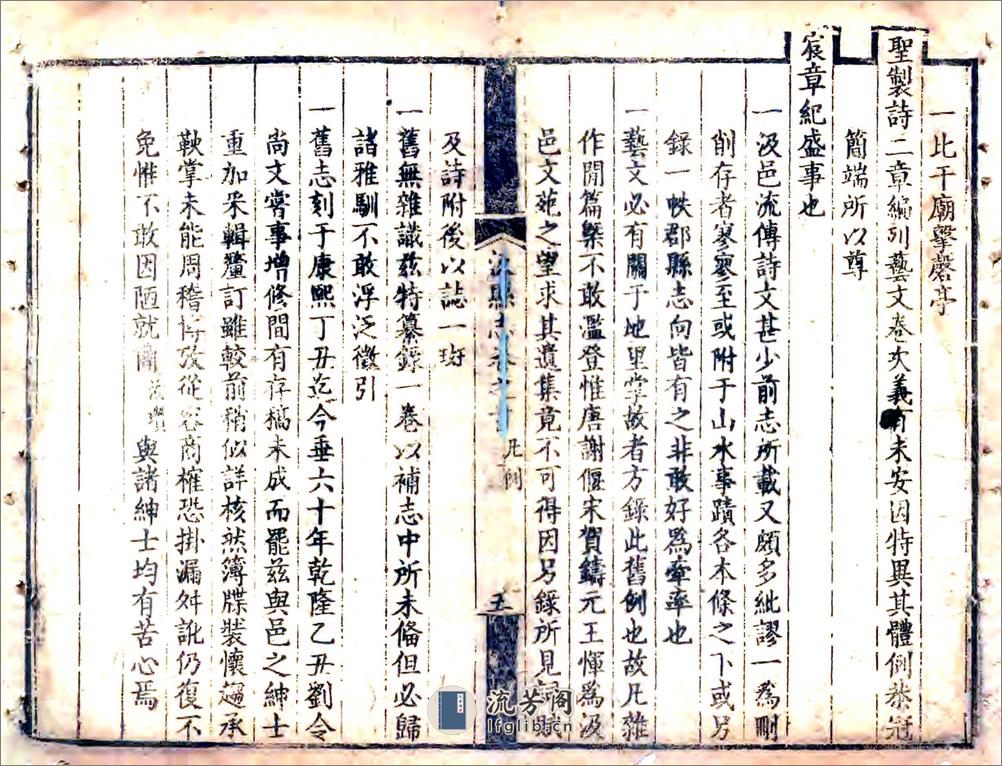 一比干廟擊磬亭
聖製詩二章編列藝文卷次義有未安因特異其體例恭冠
簡端所以尊
宸章紀盛事也
一汲邑流傳詩文甚少前志所載又頗多紕謬一為刪
削存者寥寥至或附于山水事蹟各本條之下或另
錄一帙郡縣志向皆有之非敢好為牽率也
一藝文必有關于地里掌故者方錄此舊例也故凡雜
作閒篇槩不敢濫登惟唐謝偃宋賀鑄元王惲為汲
邑文苑之望求其遺集竟不可得因另錄所見
汲縣志卷之首
凡例
五
及詩附後以誌一斑
一舊無雜識兹特纂錄一卷以補志中所未俻但必歸
諸雅馴不敢浮泛徵引
一舊志刻于康熙丁丑迄今垂六十年乾隆乙丑劉令
尚文嘗事增修間有存稿未成而罷兹與邑之紳士
重加采輯釐訂雖較前稍似詳核然簿牒裝懷趨承
鞅掌未能周稽博攷從容商榷恐掛漏舛訛仍復不
免惟不敢因陋就簡
與諸紳士均有苦心焉
流芳閣
lfglib.cn